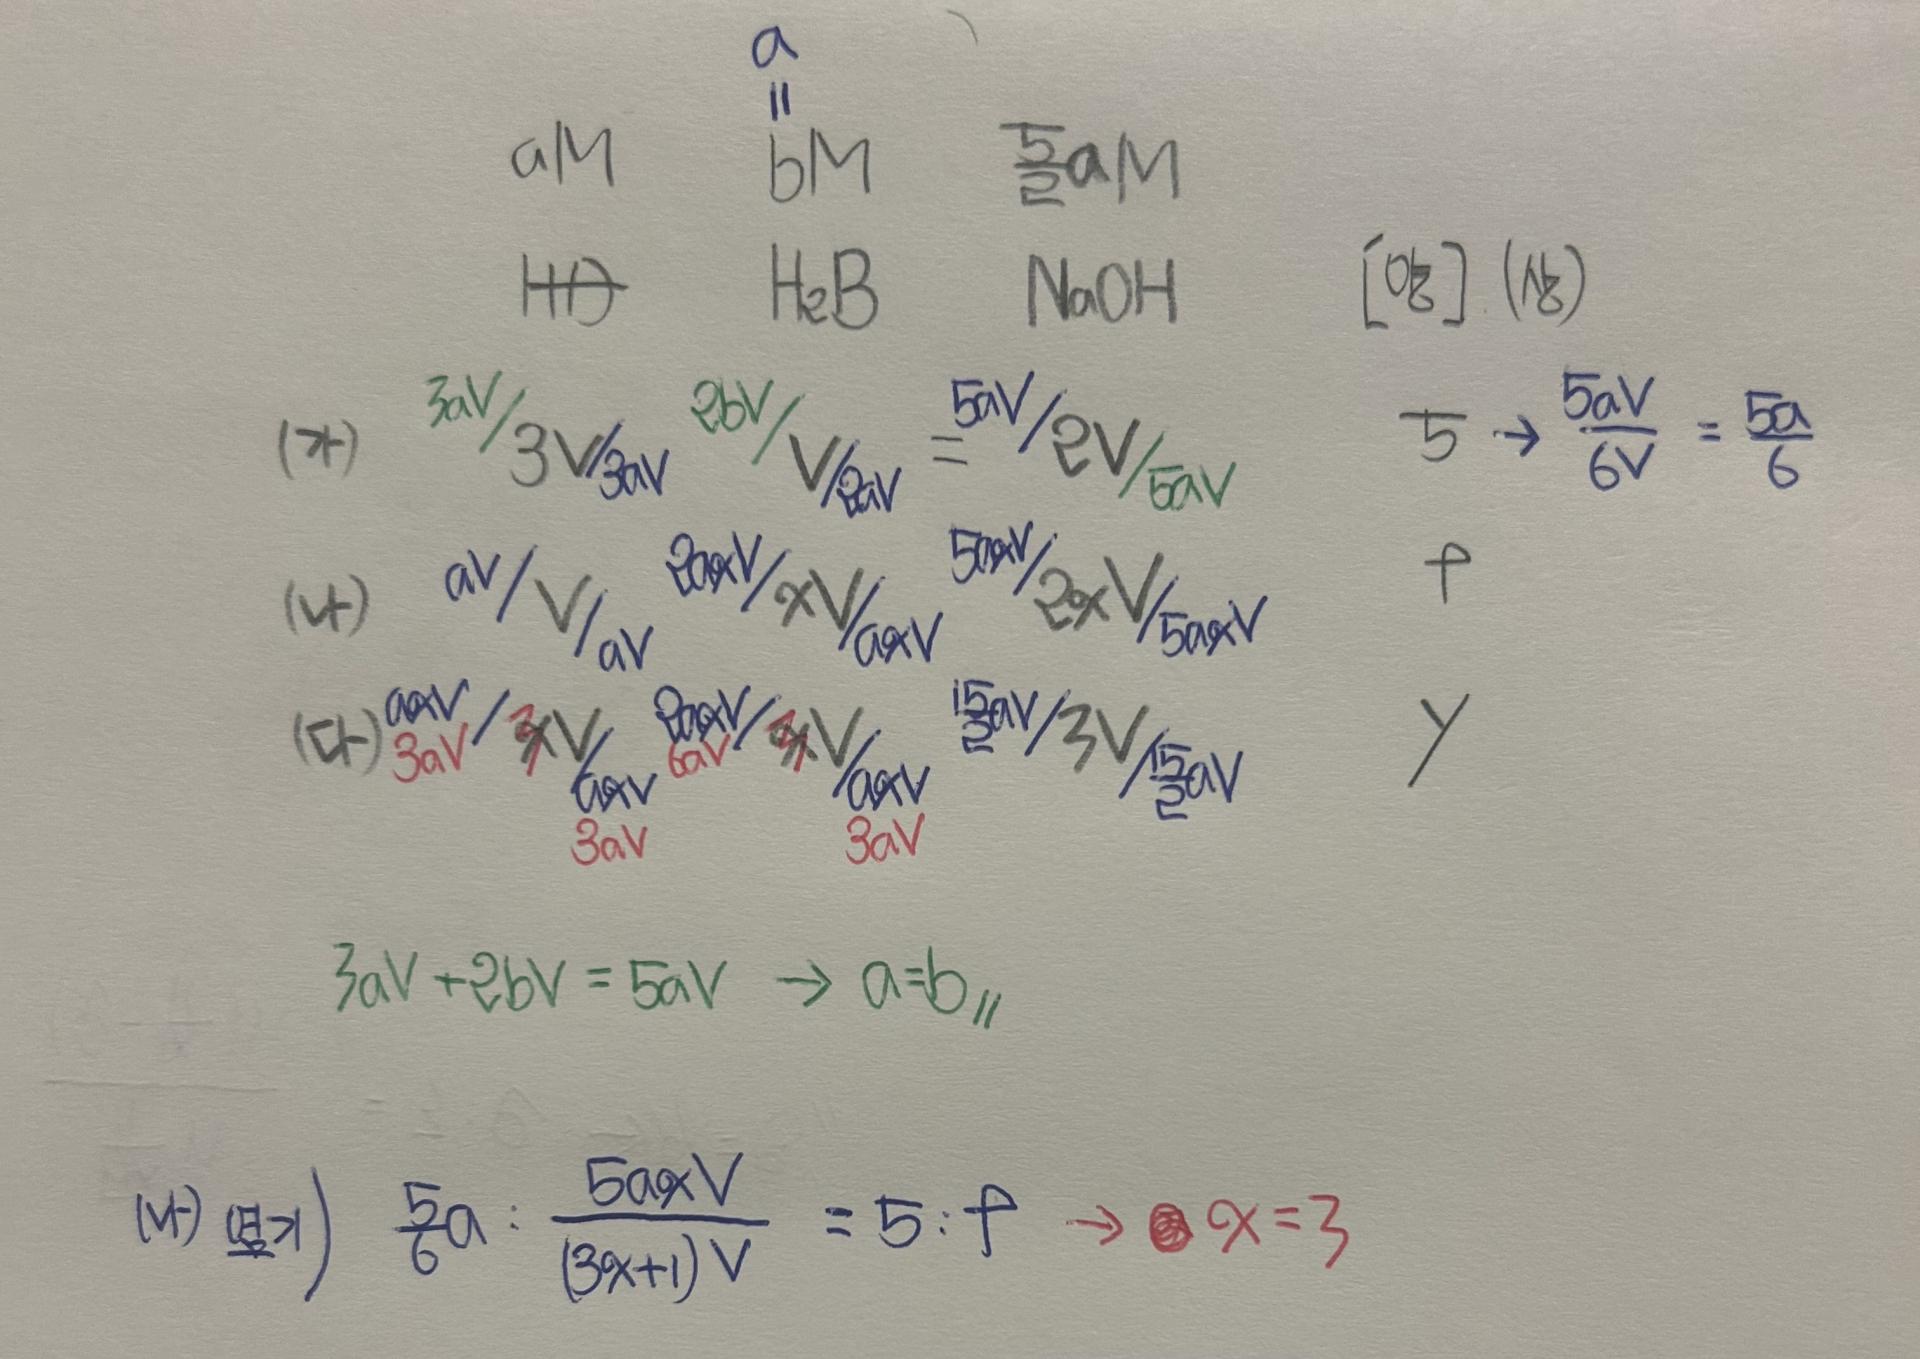 a
=
aM bM 5/2 aM
HA H₂B NaOH [양] (상)
(가) 3aV/3V/3aV 2bV/V/2aV = 5aV/2V/5aV 5 → 5aV/6V = 5a/6
(나) aV/V/aV 2axV/xV/axV 5axV/2xV/5axV 9
(다) axV 3aV/3V/axV 3aV 2axV 6aV/3V/axV 3aV 15/2 aV/3V/15/2 aV y
3aV+2bV=5aV → a=b〃
(나) 염기) 5/6 a : 5axV/(3x+1)V = 5 : 9 → x=3